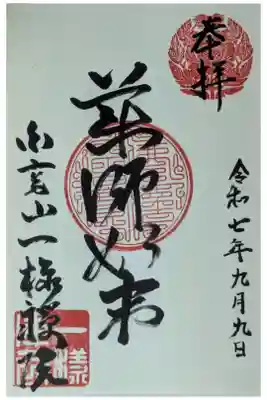 奉拝
令和七年九月九日
薬師如来
山一様院